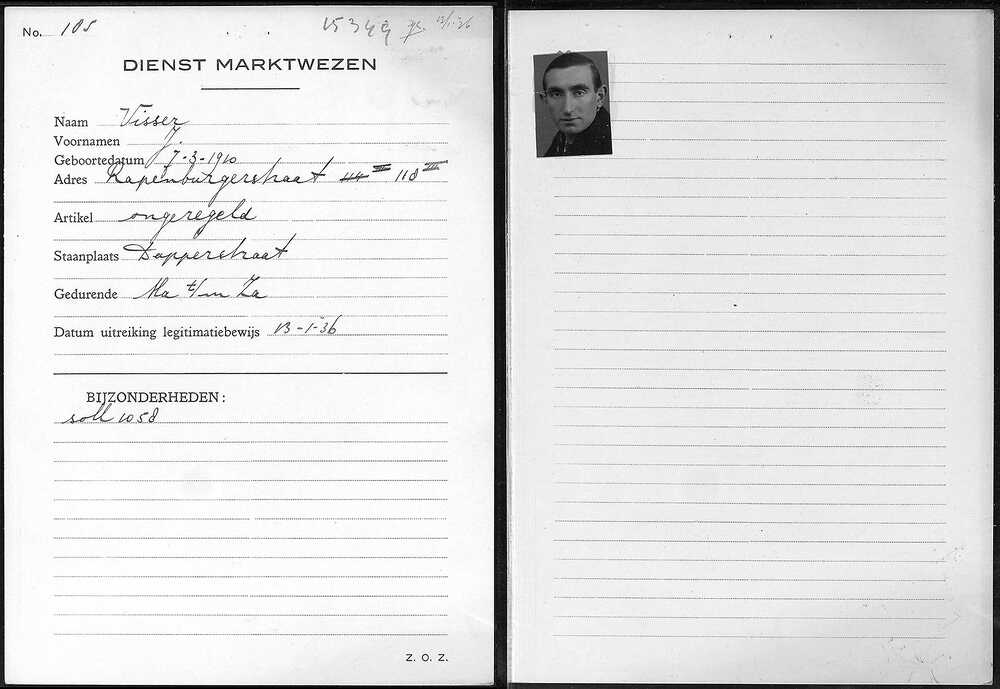 No. 105
15349 13/1-36
DIENST MARKTWEZEN
Naam Visser
Voornamen J.
Geboortedatum 7-3-1910
Adres Rapenburgerstraat 44 III 118 III
Artikel ongeregeld
Staanplaats Dapperstraat
Gedurende Ma t/m Za
Datum uitreiking legitimatiebewijs 13-1-36
BIJZONDERHEDEN:
soll 1058
Z. O. Z.